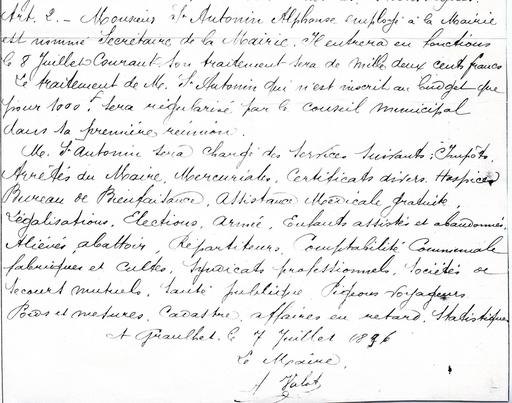 Art. 2. — Monsieur St Antonin Alphonse employé à la Mairie
est nommé Secrétaire de la Mairie. Il entrera en fonctions
le 8 Juillet Courant. son traitement sera de mille deux cents francs
Le traitement de M. St Antonin qui n'est inscrit au budget que
pour 1000 f sera régularisé par le conseil municipal
dans sa première réunion.
M. St Antonin sera chargé des services suivants : Impôts,
Arrêtés du Maire, Mercuriales, Certificats divers, Hospices
Bureau de Bienfaisance, Assistance Médicale gratuite,
Légalisations, Elections, armée, Enfants assistés et abandonnés,
Aliénés, abattoir, Répartiteurs, Comptabilité Communale
fabriques et cultes, Syndicats professionnels, Sociétés de
secours mutuels, santé publique, Pigeons voyageurs
Poids et mesures, Cadastre, affaires en retard, Statistique.
A Graulhet, le 7 Juillet 1896
Le Maire,